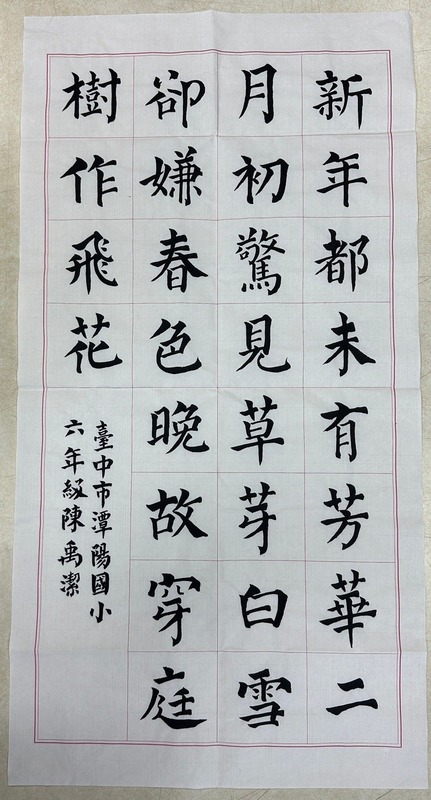 新年都未有芳華二
月初驚見草芽白雪
卻嫌春色晚故穿庭
樹作飛花
臺中市潭陽國小
六年級陳禹潔